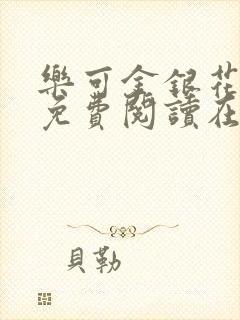 樂可金銀花
免費閱讀在
貝勒